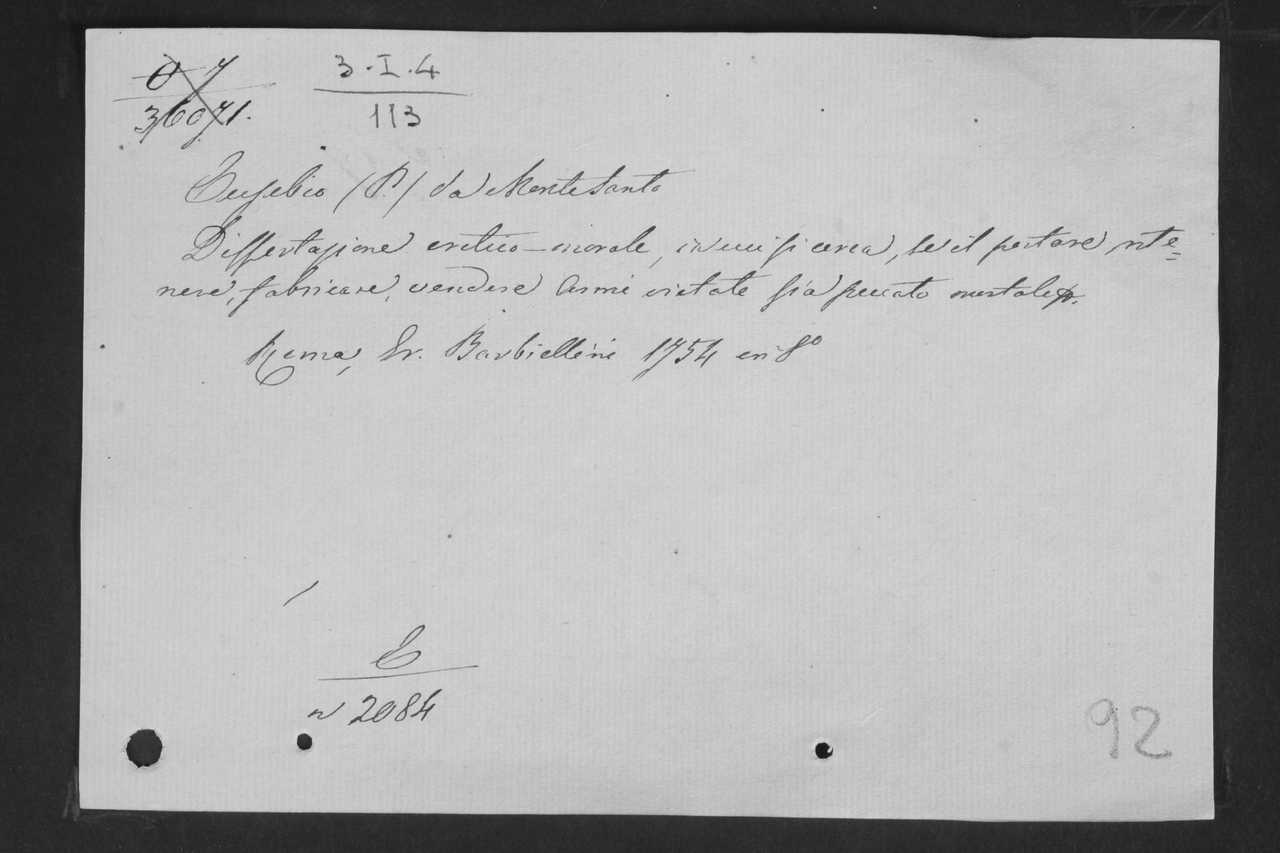 3·I·4
113
Eusebio (P.) da Monte Santo
Dissertazione critico-morale, in cui si cerca, se il portare, rite=
nere, fabricare, vendere Armi vietate sia peccato mortale.
Roma, Fr. Barbiellini 1754 in 8º
E
n 2084
92